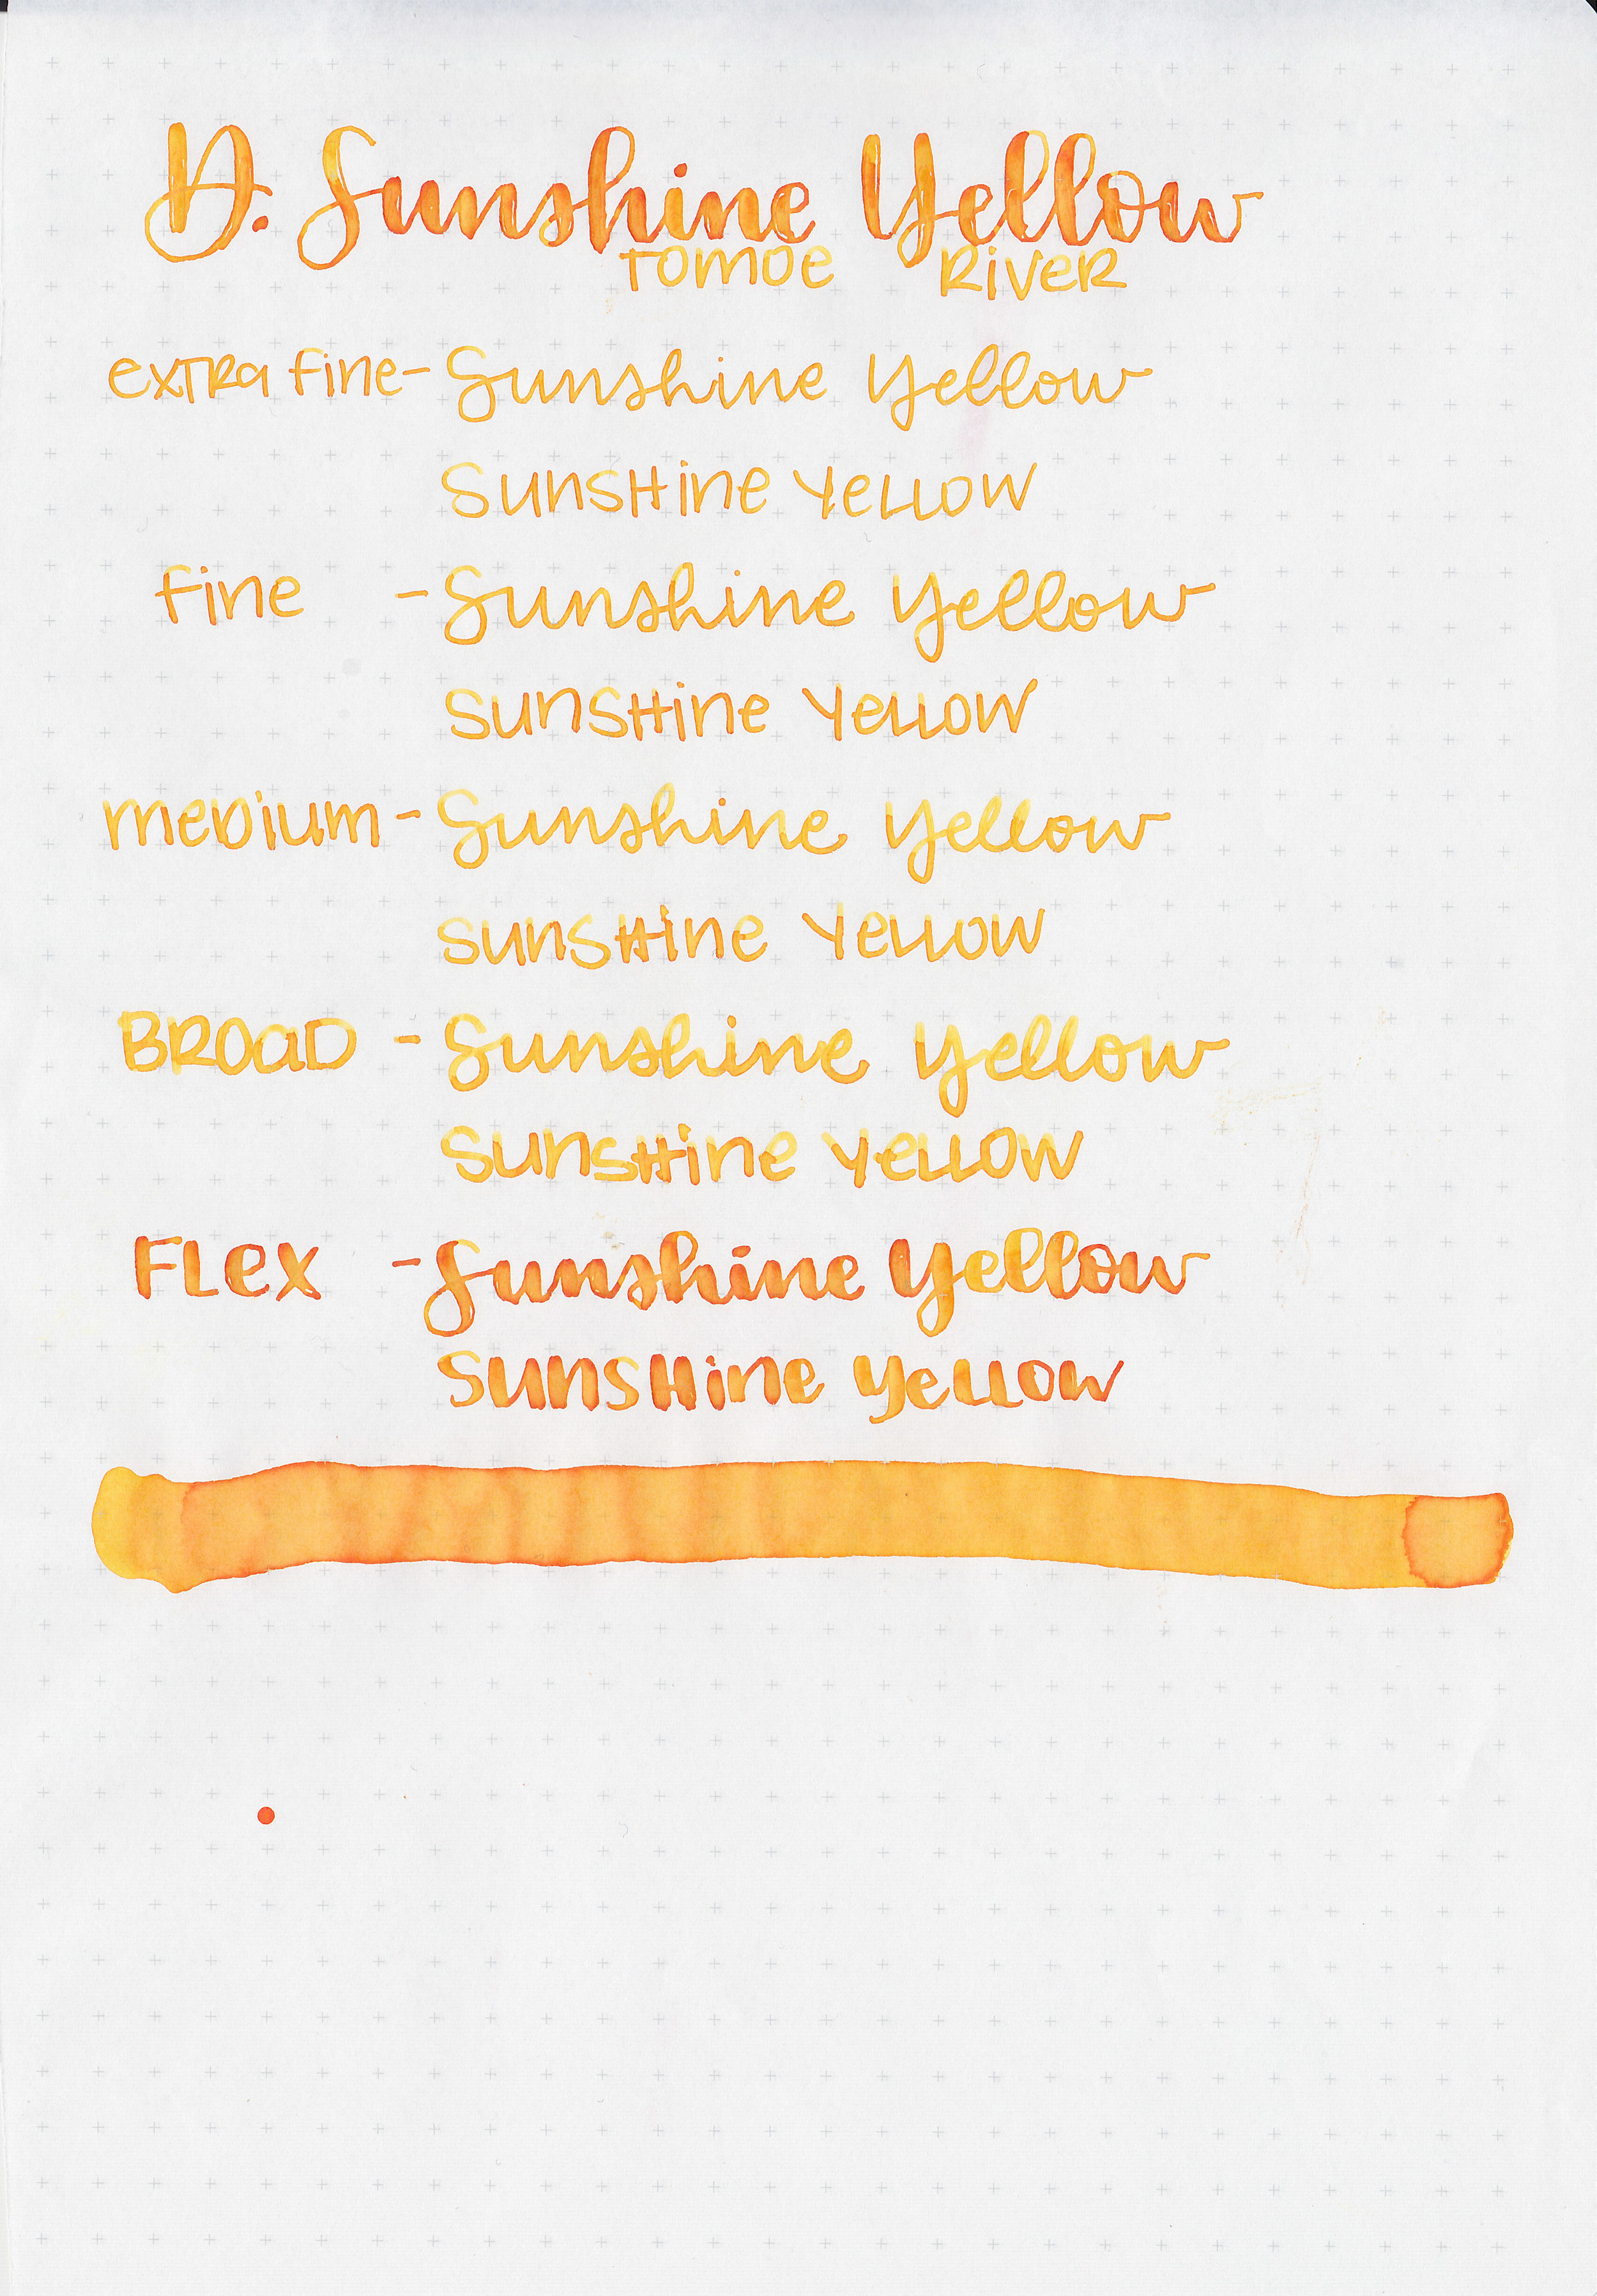 D. Sunshine Yellow
Tomoe River
extra fine- Sunshine Yellow
Sunshine Yellow
fine - Sunshine Yellow
Sunshine Yellow
medium- Sunshine Yellow
Sunshine Yellow
Broad - Sunshine Yellow
Sunshine Yellow
Flex - Sunshine Yellow
Sunshine Yellow